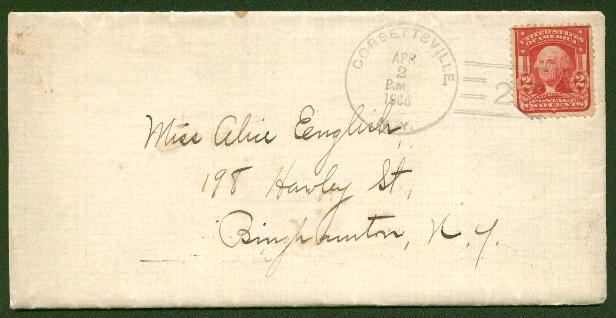 CORBETTSVILLE,
APR
2
P.M
1906
N.Y.
2
UNITED STATES
OF AMERICA
2 2
POSTAGE
TWO CENTS
Miss Alice English,
198 Hawley St,
Binghamton, N.Y.